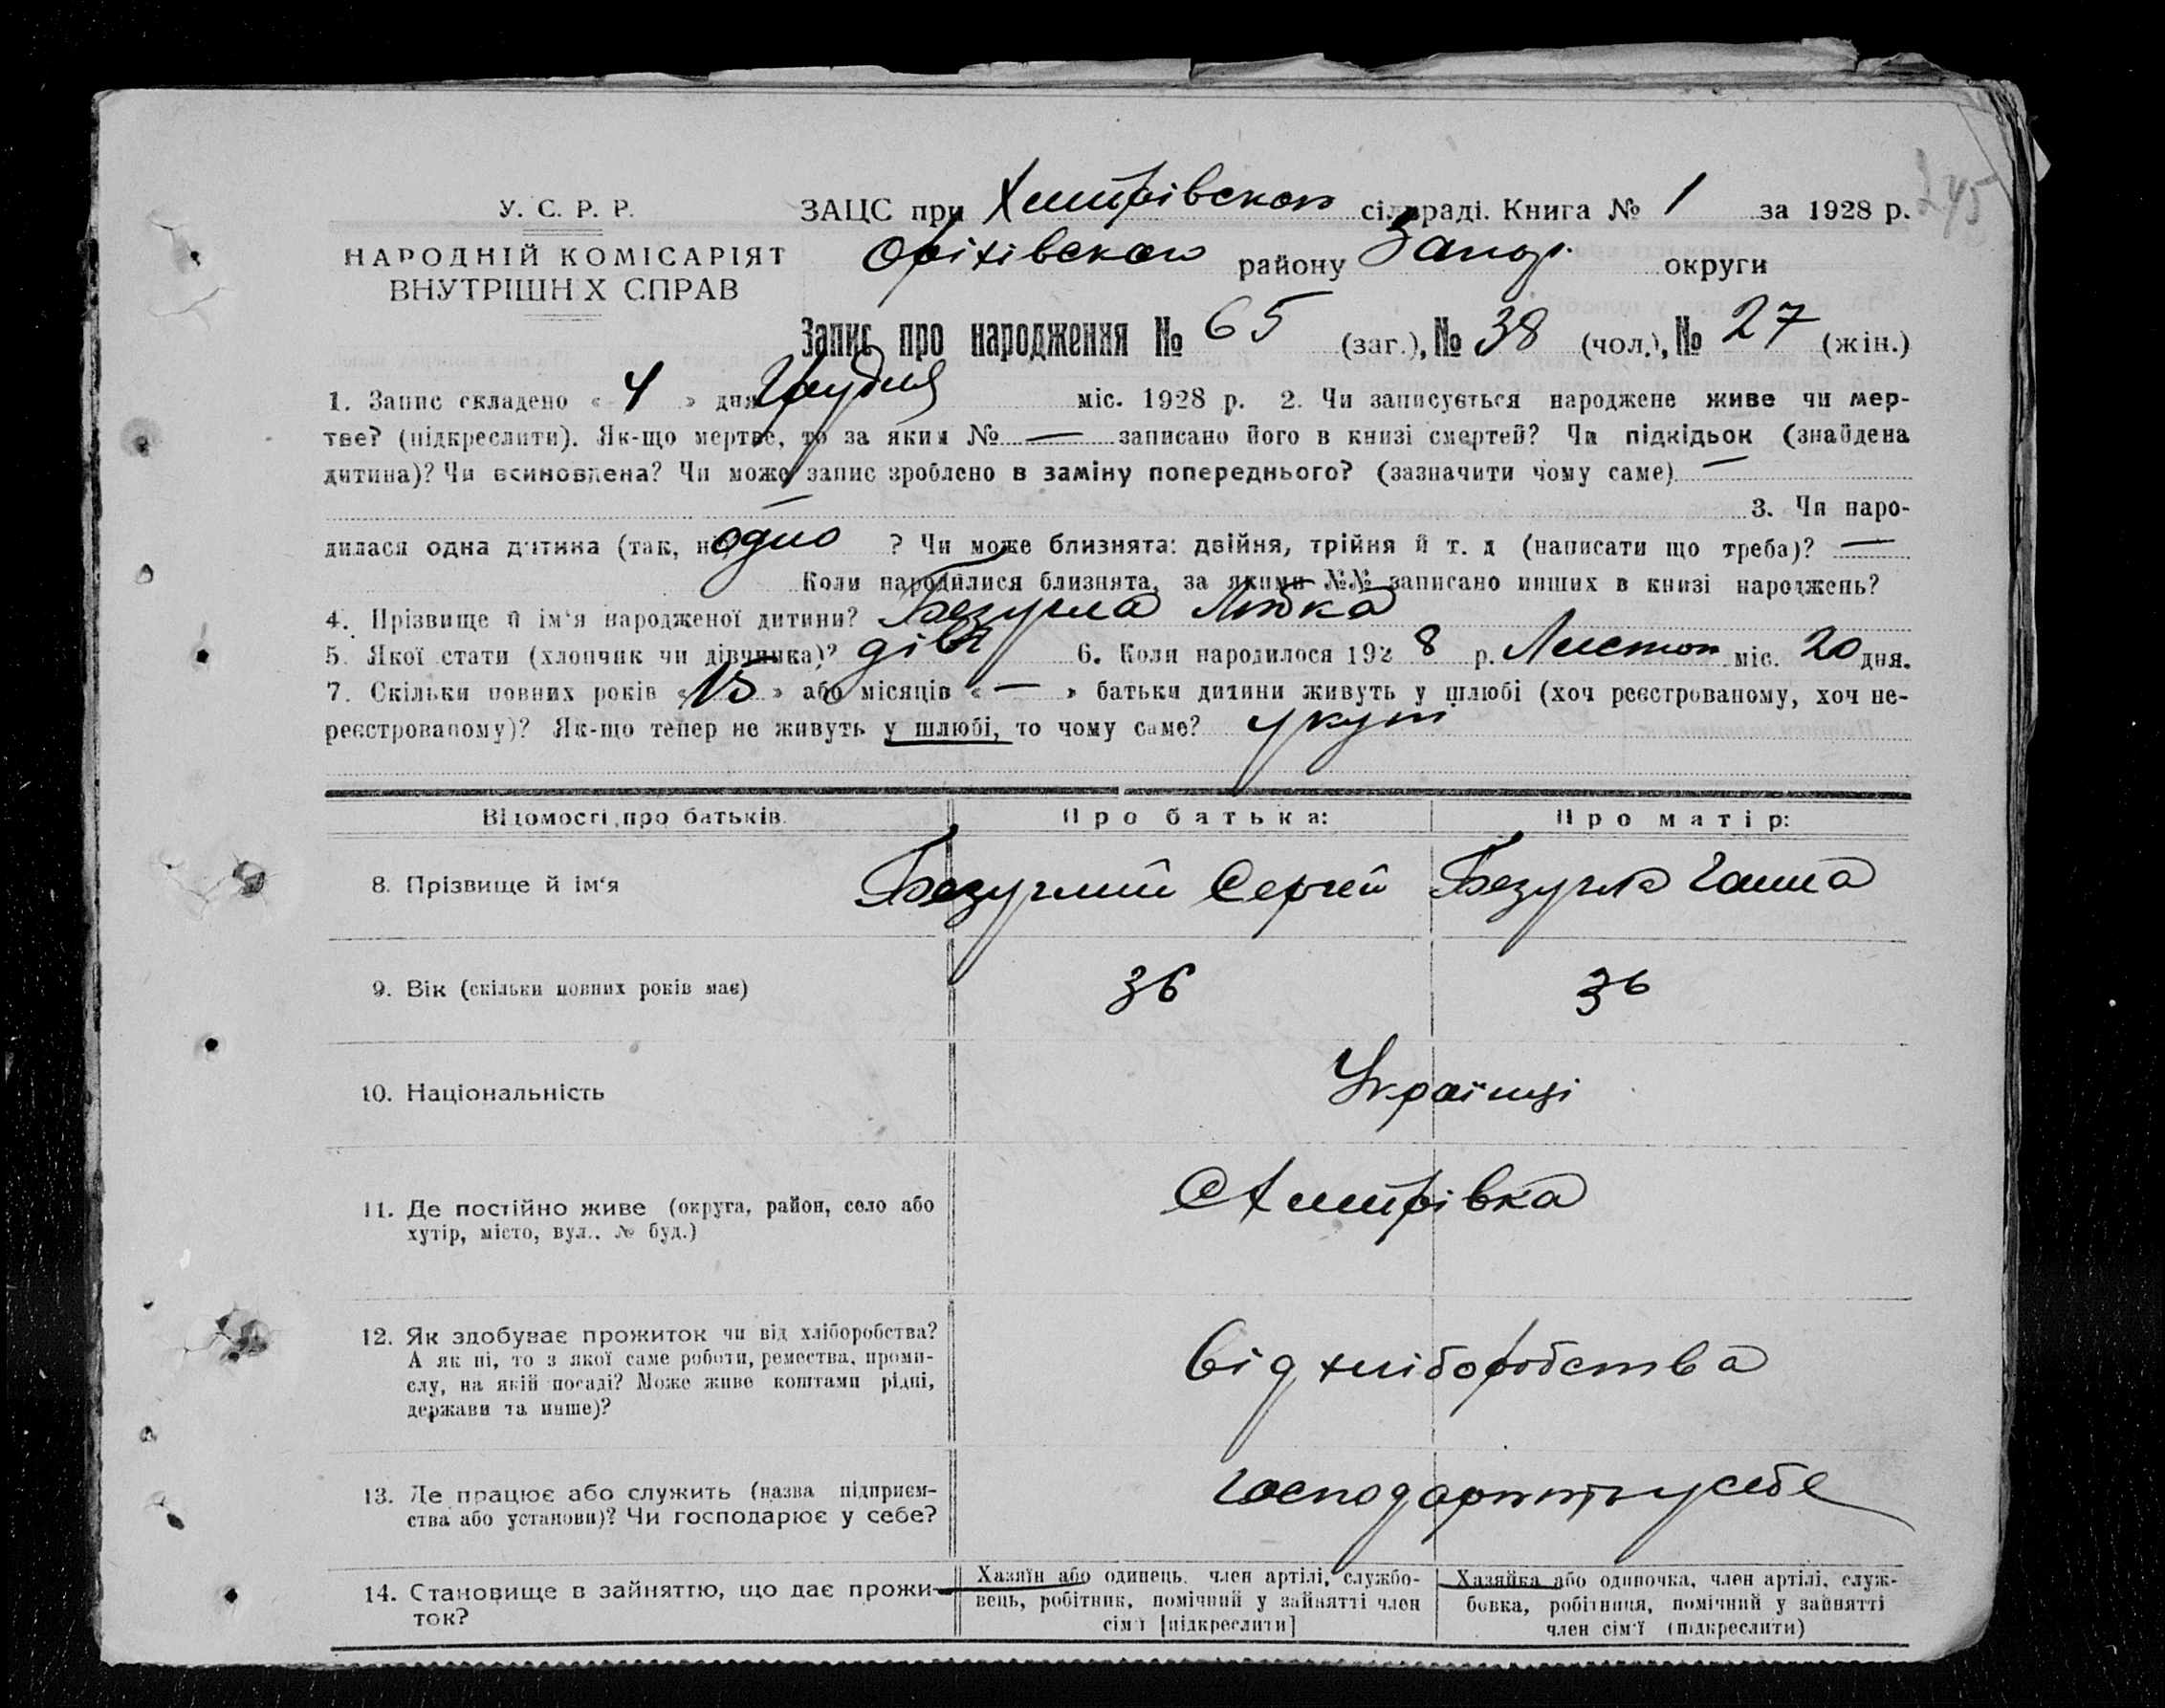 245
У. С. Р. Р.
НАРОДНІЙ КОМІСАРІЯТ
ВНУТРІШН Х СПРАВ
ЗАЦС при Хитрівской сільраді. Книга № 1 за 1928 р.
Оріхівского району Запор. округи
Запис про народження № 65 (заг.), № 38 (чол.), № 27 (жін.)
1. Запис складено « 4 » дня Грудня міс. 1928 р. 2. Чи записується народжене живе чи мер-
тве? (підкреслити). Як-що мертве, то за яким № — записано його в книзі смертей? Чи підкідьок (знайдена
дитина)? Чи всиновлена? Чи може запис зроблено в заміну попереднього? (зазначити чому саме) —
— 3. Чи наро-
дилася одна дитина (так, ні) одно ? Чи може близнята: двійня, трійня й т. д (написати що треба)? —
Коли народилися близнята, за якими №№ записано инших в книзі народжень?
4. Прізвище й ім'я народженої дитини? Безугла Любка
5. Якої стати (хлопчик чи дівчинка)? дівч 6. Коли народилося 1928 р. Листоп міс. 20 дня.
7. Скільки повних років «15» або місяців « — » батьки дитини живуть у шлюбі (хоч реєстрованому, хоч не-
реєстрованому)? Як-що тепер не живуть у шлюбі, то чому саме? укупі
Відомості про батьків. Про батька: Про матір:
8. Прізвище й ім'я Безуглий Сергій Безугла Ганна
9. Вік (скільки повних років має) 36 36
10. Національність Українці
11. Де постійно живе (округа, район, село або
хутір, місто, вул.. № буд.) С Хитрівка
12. Як здобуває прожиток чи від хліборобства?
А як ні, то з якої саме роботи, ремества, проми-
слу, на якій посаді? Може живе коштами рідні,
держави та инше)? Від хліборобства
13. Де працює або служить (назва підприєм-
ства або установи)? Чи господарює у себе? у себе
14. Становище в зайняттю, що дає прожи-
ток?
Хазяїн або одинець, член артілі, службо-
вець, робітник, помічний у зайнятті член
сім'ї [підкреслити]
Хазяйка або одиночка, член артілі, служ-
бовка, робітниця, помічний у зайнятті
член сім'ї (підкреслити)